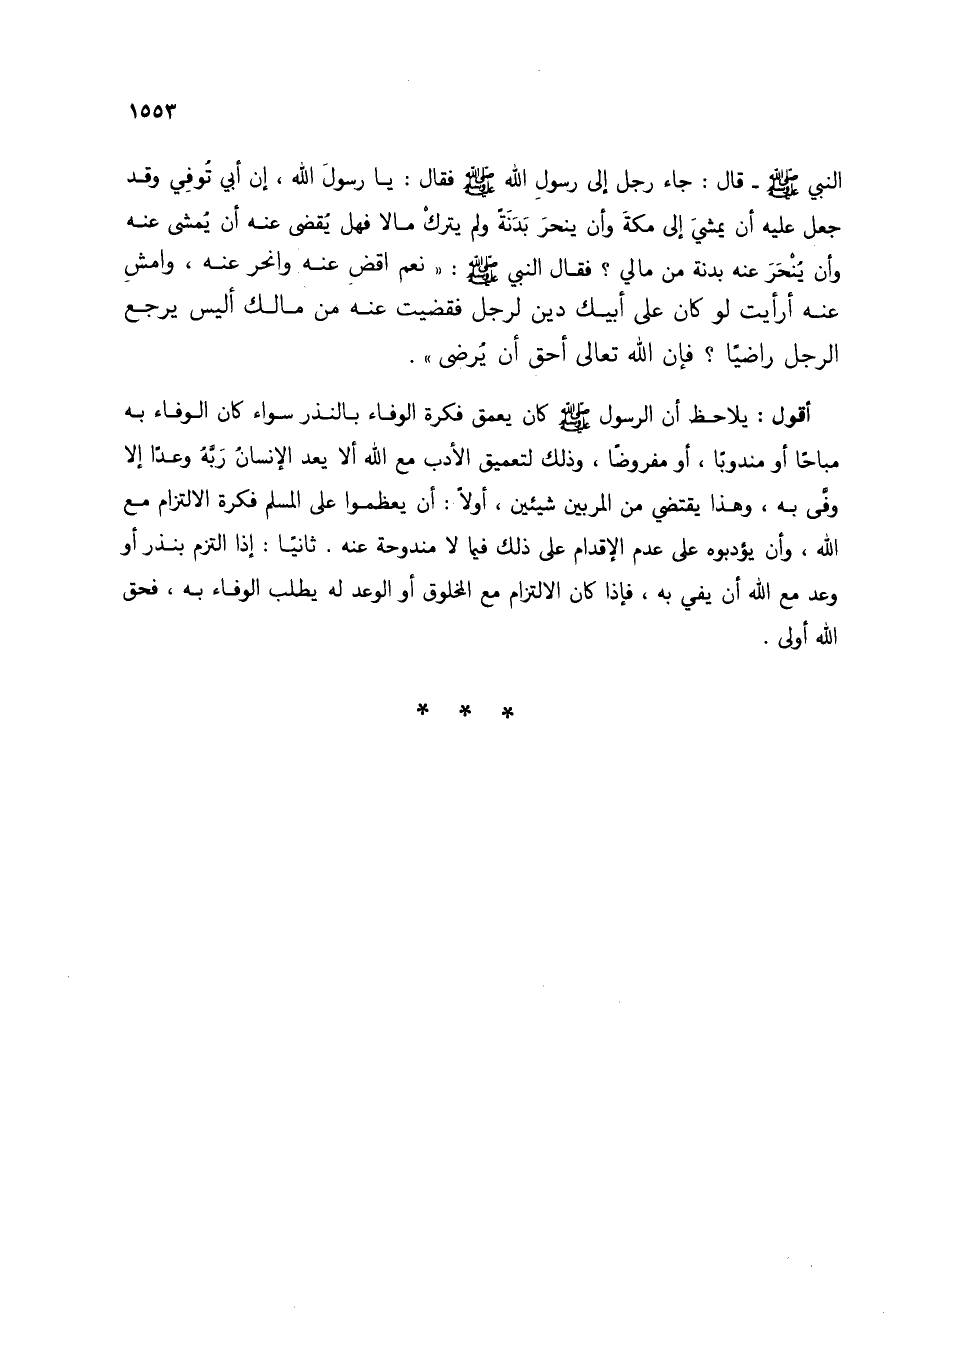 ١٥٥٣
النبي ﷺ ـ قال : جاء رجل إلى رسولِ الله ﷺ فقال : يـا رسولَ الله ، إن أبي تُوفِي وقـد
جعل عليه أن يمشيَ إلى مكةَ وأن ينحرَ بَدَنَةً ولم يتركْ مـالا فهل يُقضى عنـه أن يُمشى عنـه
وأن يُنْحَرَ عنه بدنة من مالي ؟ فقـال النبي ﷺ : « نعم اقضِ عنـه وانحر عنـه ، وامشِ
عنـه أرأيت لو كان على أبيـك دين لرجل فقضيت عنـه من مـالـك أليس يرجـع
الرجل راضيًا ؟ فإن الله تعالى أحق أن يُرضى » .
أقول : يلاحـظ أن الرسول ﷺ كان يعمق فكرة الوفـاء بـالنـذر سـواء كان الـوفـاء بـه
مباحًا أو مندوبًا ، أو مفروضًا ، وذلك لتعميق الأدب مع الله ألا يعد الإنسانُ رَبَّهُ وعـدًا إلا
وفَّى بـه ، وهـذا يقتضي من المربين شيئين ، أولاً : أن يعظمـوا على المسلم فكرة الالتزام مـع
الله ، وأن يؤدبوه على عدم الإقدام على ذلك فيما لا مندوحة عنه . ثانيًـا : إذا التزم بنـذر أو
وعد مع الله أن يفي به ، فإذا كان الالتزام مع المخلوق أو الوعد له يطلب الوفـاء بـه ، فحق
الله أولى .
* * *